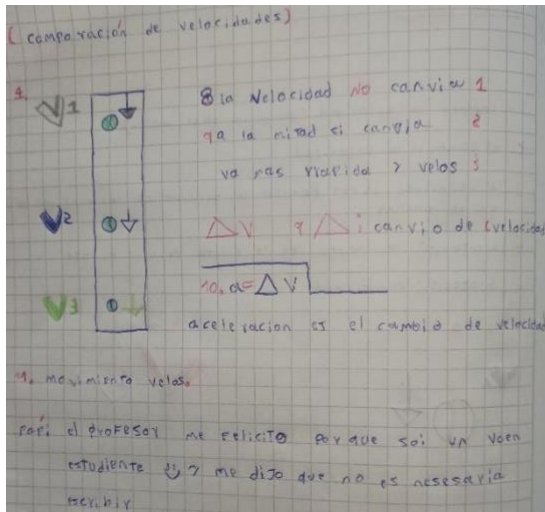 (comparación de velocidades)
1
V1
8 la Nelocidad No canvia 1
9a la mitad si canvia 2
va mas rrapida y velos 3
V2
ΔV 9 Δ: canvio de (velosidad
10. a= ΔV
V3
aceleracion es el cambio de velocidad
11. movimiento velos.
Papi el profesor me felicito por que soi un voen
estudiente y me dijo que no es nesesaria
escribir